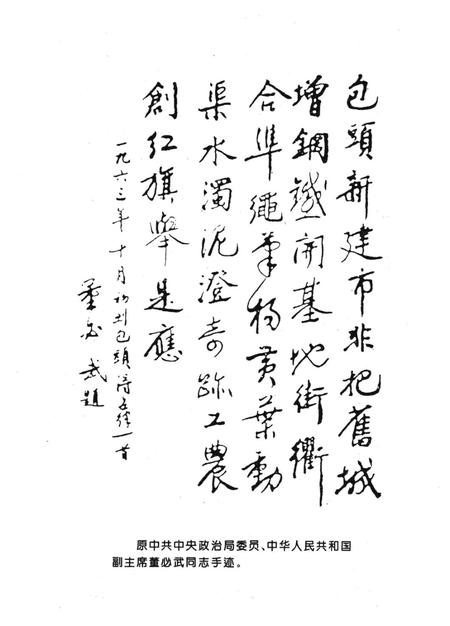 包頭新建市非把舊城
增鋼鐵開基地街衢
合準繩葦楊黃葉動
渠水濁泥澄奇跡工農
創紅旗舉是應
一九六三年十月初到包頭得五律一首
董必武題
原中共中央政治局委员、中华人民共和国
副主席董必武同志手迹。